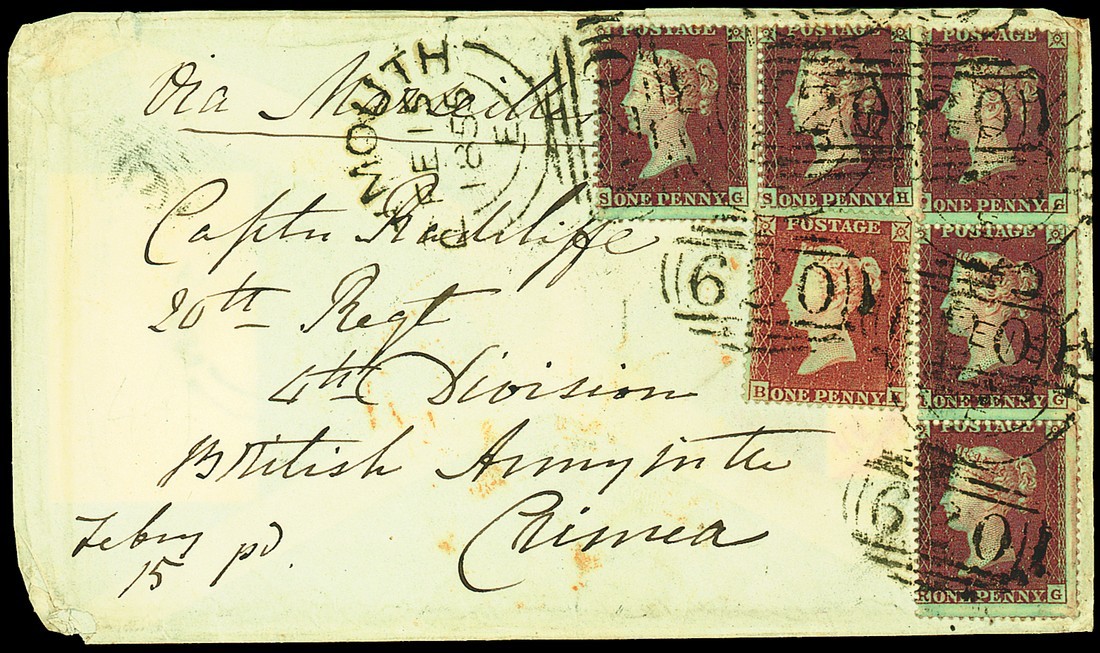 Via Marseilles
Captn Radcliffe
20th Regt
4th Division
British Army in the
Crimea
Febry
15 pd.
MOUTH
FE 15
1856
E
POSTAGE
S ONE PENNY G
POSTAGE
S ONE PENNY H
POSTAGE
ONE PENNY G
POSTAGE
B ONE PENNY K
POSTAGE
ONE PENNY G
POSTAGE
R ONE PENNY G
9 01
9 01